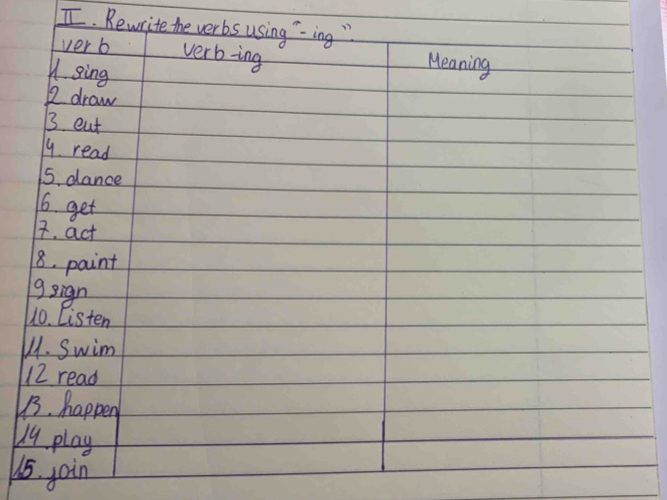 II. Rewrite the verbs using "-ing".
verb verb-ing Meaning
1. sing
2. draw
3. cut
4. read
5. dance
6. get
7. act
8. paint
9 sign
10. Listen
11. Swim
12 read
13. happen
14. play
15. join